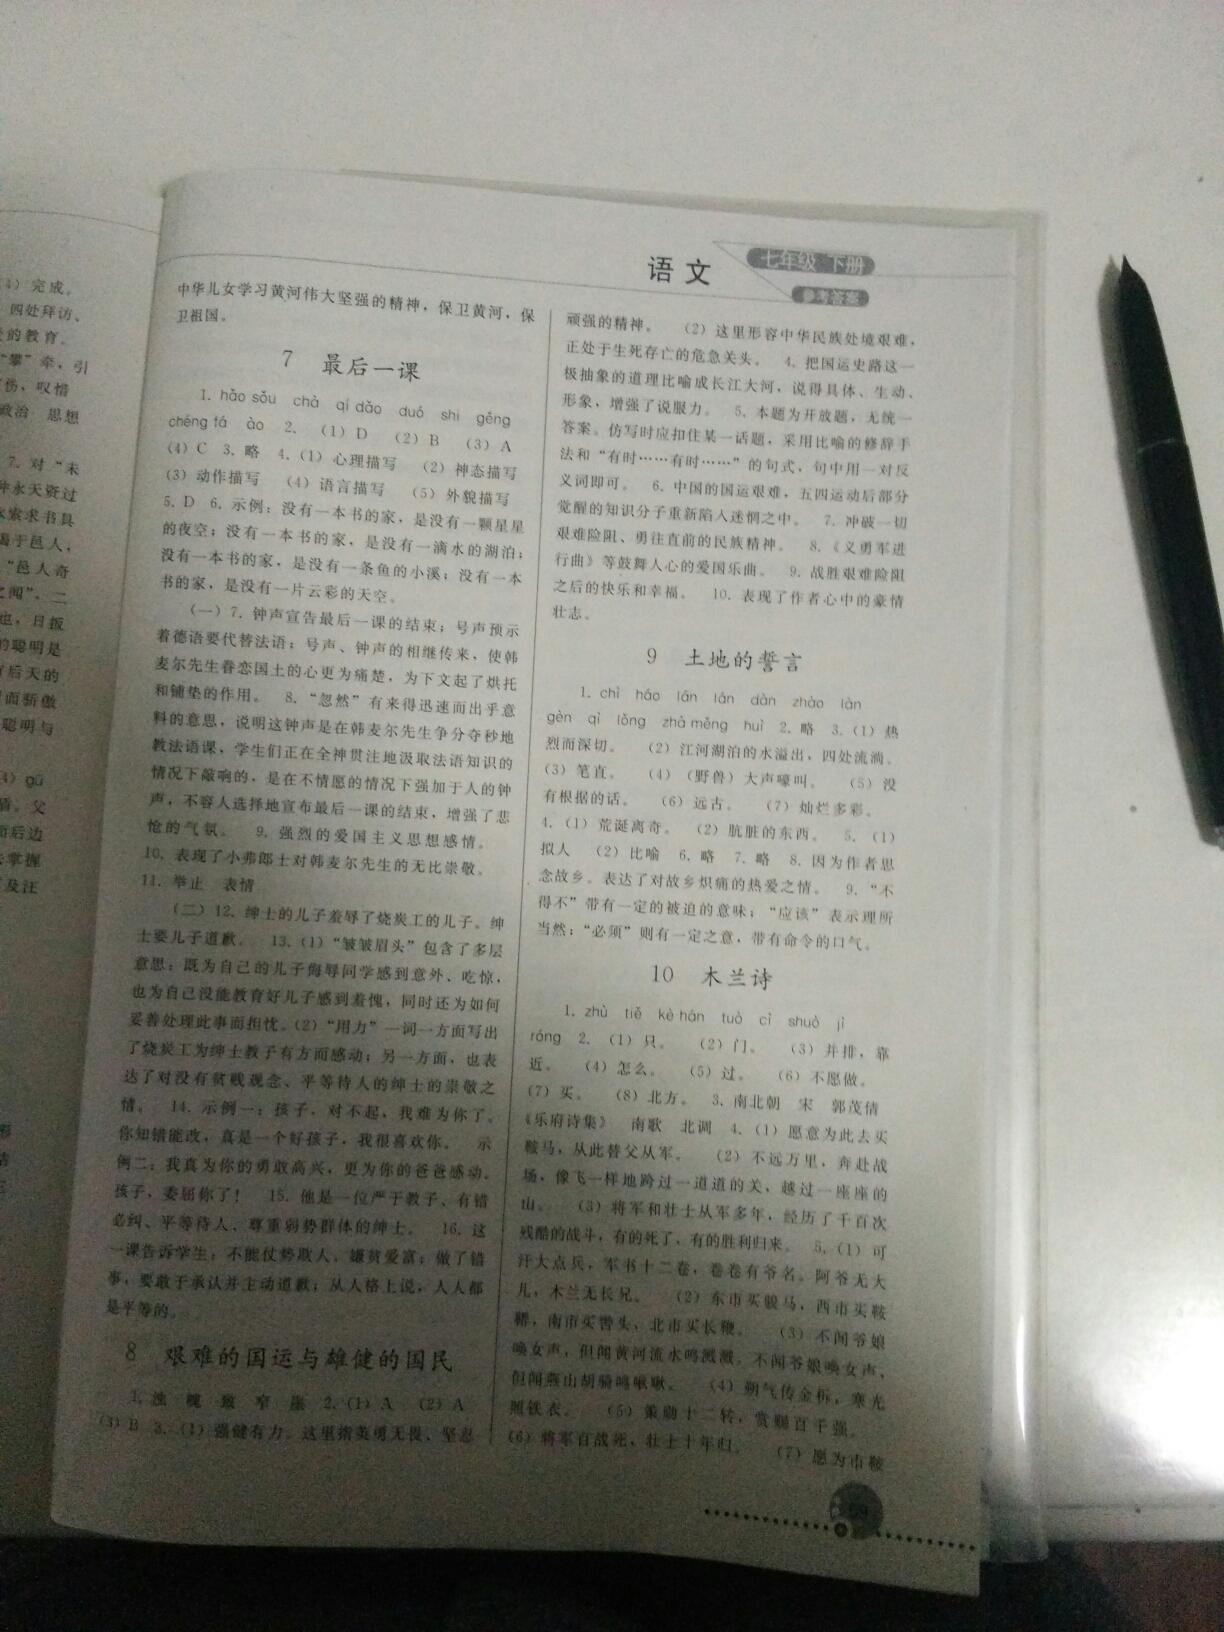 (4) 完成。
四处拜访、
的教育。
“攀”牵，引
伤、叹惜
政治 思想
7. 对“未
仲永天资过
求索求书具
谒于邑人，
“邑人奇
之闻”，二
也，日扳
的聪明是
后天的
面骄傲
聪明与
(4) gū
盾。父
后边
掌握
及汪
语文
七年级 下册
参考答案
中华儿女学习黄河伟大坚强的精神，保卫黄河，保
卫祖国。
7 最后一课
1. hǎo sǒu chà qí dǎo duó shì gěng
chéng tá ào 2. (1) D (2) B (3) A
(4) C 3. 略 4. (1) 心理描写 (2) 神态描写
(3) 动作描写 (4) 语言描写 (5) 外貌描写
5. D 6. 示例：没有一本书的家，是没有一颗星星
的夜空；没有一本书的家，是没有一滴水的湖泊；
没有一本书的家，是没有一条鱼的小溪；没有一本
书的家，是没有一片云彩的天空。
(一) 7. 钟声宣告最后一课的结束；号声预示
着德语要代替法语；号声、钟声的相继传来，使韩
麦尔先生眷恋国土的心更为痛楚，为下文起了烘托
和铺垫的作用。 8. “忽然”有来得迅速而出乎意
料的意思，说明这钟声是在韩麦尔先生争分夺秒地
教法语课，学生们正在全神贯注地汲取法语知识的
情况下敲响的，是在不情愿的情况下强加于人的钟
声，不容人选择地宣布最后一课的结束，增强了悲
怆的气氛。 9. 强烈的爱国主义思想感情。
10. 表现了小弗郎士对韩麦尔先生的无比崇敬。
11. 举止 表情
(二) 12. 绅士的儿子羞辱了烧炭工的儿子。绅
士要儿子道歉。 13. (1) “皱皱眉头”包含了多层
意思：既为自己的儿子侮辱同学感到意外、吃惊，
也为自己没能教育好儿子感到羞愧，同时还为如何
妥善处理此事而担忧。(2) “用力”一词一方面写出
了烧炭工为绅士教子有方而感动；另一方面，也表
达了对没有贫贱观念、平等待人的绅士的崇敬之
情。 14. 示例一：孩子，对不起，我难为你了。
你知错能改，真是一个好孩子，我很喜欢你。 示
例二：我真为你的勇敢高兴，更为你的爸爸感动。
孩子，委屈你了！ 15. 他是一位严于教子、有错
必纠、平等待人、尊重弱势群体的绅士。 16. 这
一课告诉学生：不能仗势欺人、嫌贫爱富；做了错
事，要敢于承认并主动道歉；从人格上说，人人都
是平等的。
8 艰难的国运与雄健的国民
1. 浊 魄 致 窄 崖 2. (1) A (2) A
(3) B 3. (1) 强健有力。这里指英勇无畏、坚忍
顽强的精神。 (2) 这里形容中华民族处境艰难，
正处于生死存亡的危急关头。 4. 把国运史路这一
极抽象的道理比喻成长江大河，说得具体、生动、
形象，增强了说服力。 5. 本题为开放题，无统一
答案。仿写时应扣住某一话题，采用比喻的修辞手
法和“有时……有时……”的句式，句中用一对反
义词即可。 6. 中国的国运艰难，五四运动后部分
觉醒的知识分子重新陷入迷惘之中。 7. 冲破一切
艰难险阻、勇往直前的民族精神。 8.《义勇军进
行曲》等鼓舞人心的爱国乐曲。 9. 战胜艰难险阻
之后的快乐和幸福。 10. 表现了作者心中的豪情
壮志。
9 土地的誓言
1. chì háo lán lán dàn zhào làn
gèn qì lǒng zhà měng huì 2. 略 3. (1) 热
烈而深切。 (2) 江河湖泊的水溢出，四处流淌。
(3) 笔直。 (4) (野兽) 大声嚎叫。 (5) 没
有根据的话。 (6) 远古。 (7) 灿烂多彩。
4. (1) 荒诞离奇。 (2) 肮脏的东西。 5. (1)
拟人 (2) 比喻 6. 略 7. 略 8. 因为作者思
念故乡。表达了对故乡炽痛的热爱之情。 9. “不
得不”带有一定的被迫的意味；“应该”表示理所
当然；“必须”则有一定之意，带有命令的口气。
10 木兰诗
1. zhù tiě kè hán tuò cì shuò jì
róng 2. (1) 只。 (2) 门。 (3) 并排，靠
近。 (4) 怎么。 (5) 过。 (6) 不愿做。
(7) 买。 (8) 北方。 3. 南北朝 宋 郭茂倩
《乐府诗集》 南歌 北调 4. (1) 愿意为此去买
鞍马，从此替父从军。 (2) 不远万里，奔赴战
场，像飞一样地跨过一道道的关，越过一座座的
山。 (3) 将军和壮士从军多年，经历了千百次
残酷的战斗，有的死了，有的胜利归来。 5. (1) 可
汗大点兵，军书十二卷，卷卷有爷名。阿爷无大
儿，木兰无长兄。 (2) 东市买骏马，西市买鞍
鞯，南市买辔头，北市买长鞭。 (3) 不闻爷娘
唤女声，但闻黄河流水鸣溅溅。不闻爷娘唤女声，
但闻燕山胡骑鸣啾啾。 (4) 朔气传金柝，寒光
照铁衣。 (5) 策勋十二转，赏赐百千强。
(6) 将军百战死，壮士十年归。 (7) 愿为市鞍